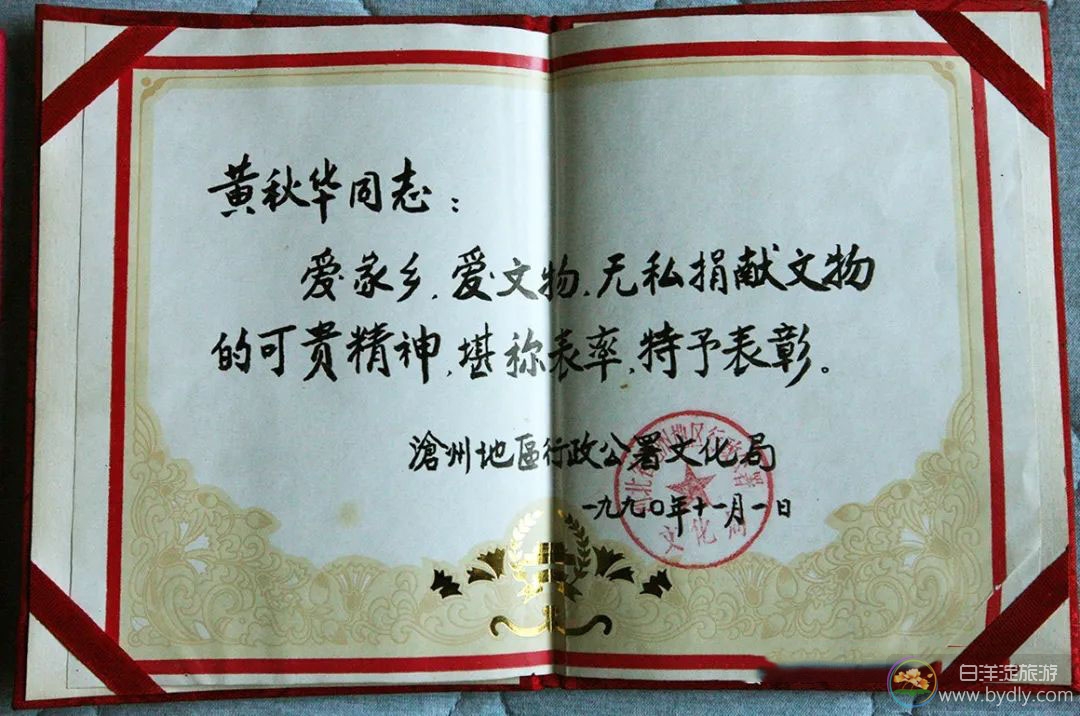 黄秋华同志：
爱家乡，爱文物，无私捐献文物
的可贵精神，堪称表率，特予表彰。
滄州地區行政公署文化局
一九九〇年十一月一日
文化局
白洋淀旅游
www.bydly.com